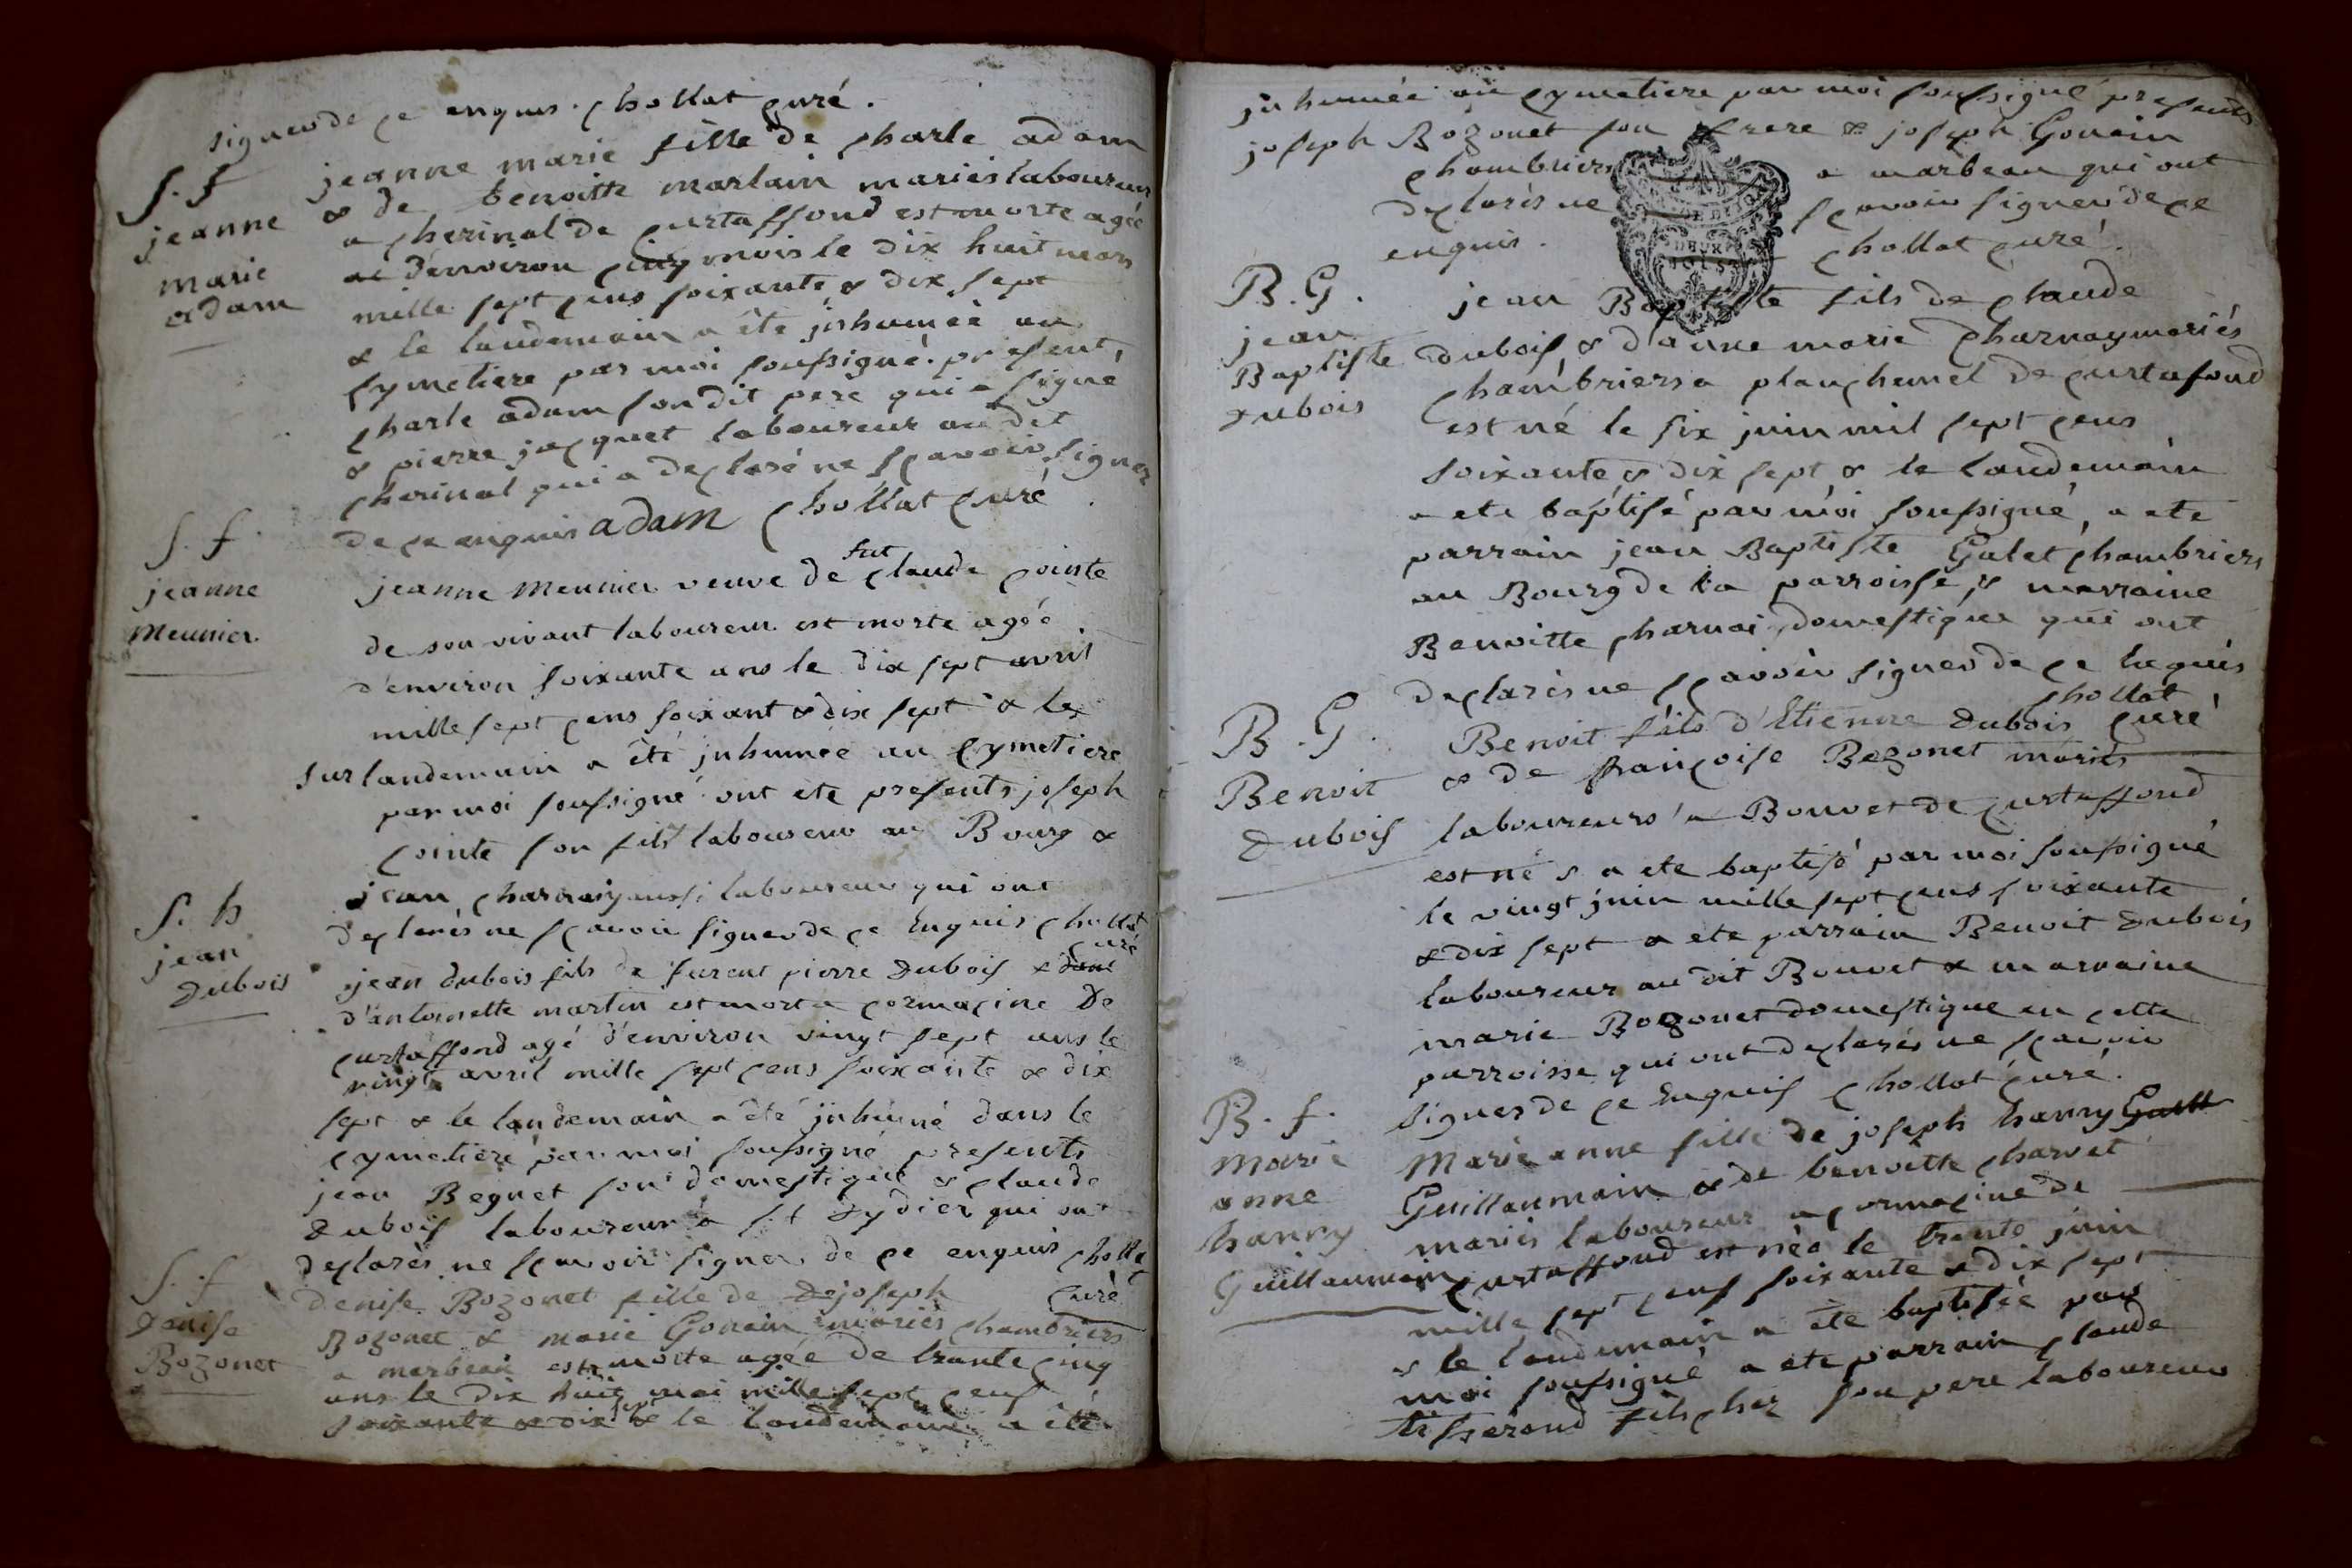 signer de ce enquis. chollat curé.
S. f
jeanne
marie
adam
jeanne marie fille de charle adam
& de benoitte marlain mariés laboureurs
a cherinal de curtaffond est morte agée
d'environ cinq mois le dix huit mars
mille sept cens soixante & dix sept
& le landemain a été inhumée au
cymetiere par moi soussigné. present,
charle adam son dit pere qui a signé
& pierre jacquet laboureur au dit
cherinal qui a declaré ne sçavoir signer
de ce enquis adam chollat curé
S. f.
jeanne
meunier
jeanne meunier veuve de fut claude cointe
de son vivant laboureur est morte agée
d'environ soixante ans le dix sept avril
mille sept cens soixant & dix sept & le
surlandemain a été inhumée au cymetiere
par moi soussigné ont ete presents joseph
cointe son fils laboureur au Bourg &
jean charnay aussi laboureur qui ont
declarés ne sçavoir signer de ce enquis chollat
curé
S. h
jean
Dubois
jean dubois fils de furent pierre Dubois &
d'antoinette martin est mort a cormacine De
curtaffond agé d'environ vingt sept ans le
vingt avril mille sept cens soixante & dix
sept & le landemain a été inhumé dans le
cymetiere par moi soussigné presents
jean Beguet son domestique & claude
Dubois laboureur a st Dydier qui ont
declarés ne sçavoir signer de ce enquis chollat
curé
S. f
Denise
Bozonet
denise Bozonet fille de joseph
Bozonet & marie Gonain mariés chambriers
a marbeau est morte agée de trante cinq
ans le dix huit mai mille sept cens
soixante & dix sept & le landemain a été
inhumée au cymetiere par moi soussigné presents
joseph Bozonet son frere & joseph Gonain
chambriers a marbeau qui ont
declarés ne sçavoir signer de ce
enquis. chollat curé.
B. G.
jean
Baptiste
Dubois
jean Baptiste fils de claude
dubois & d'anne marie charnay mariés
chambriers a planchemel de curtafond
est né le six juin mil sept cens
soixante & dix sept & le landemain
a ete baptisé par moi soussigné, a ete
parrain jean Baptiste Galet chambriers
au Bourg de la parroisse, & marraine
Benoitte charnai domestique qui ont
declarés ne sçavoir signer de ce enquis
chollat
curé
B. G.
Benoit
Dubois
Benoit fils d'Etienne Dubois
& de françoise Bozonet mariés
laboureurs a Bouvet de curtaffond
est né & a ete baptisé par moi soussigné
le vingt juin mille sept cens soixante
& dix sept a ete parrain Benoit Dubois
laboureur au dit Bouvet & marraine
marie Bozonet domestique en cette
parroisse qui ont declarés ne sçavoir
signer de ce enquis chollat curé.
B. f.
Marie
anne
hanny
Guillaumain
Marie anne fille de joseph hanny
Guillaumain & de benoitte charvet
mariés laboureur a cormacine de
curtaffond est née le trente juin
mille sept cens soixante & dix sept
& le landemain a ete baptisée par
moi soussigné a ete parrain claude
tisserand fils chez son pere laboureur